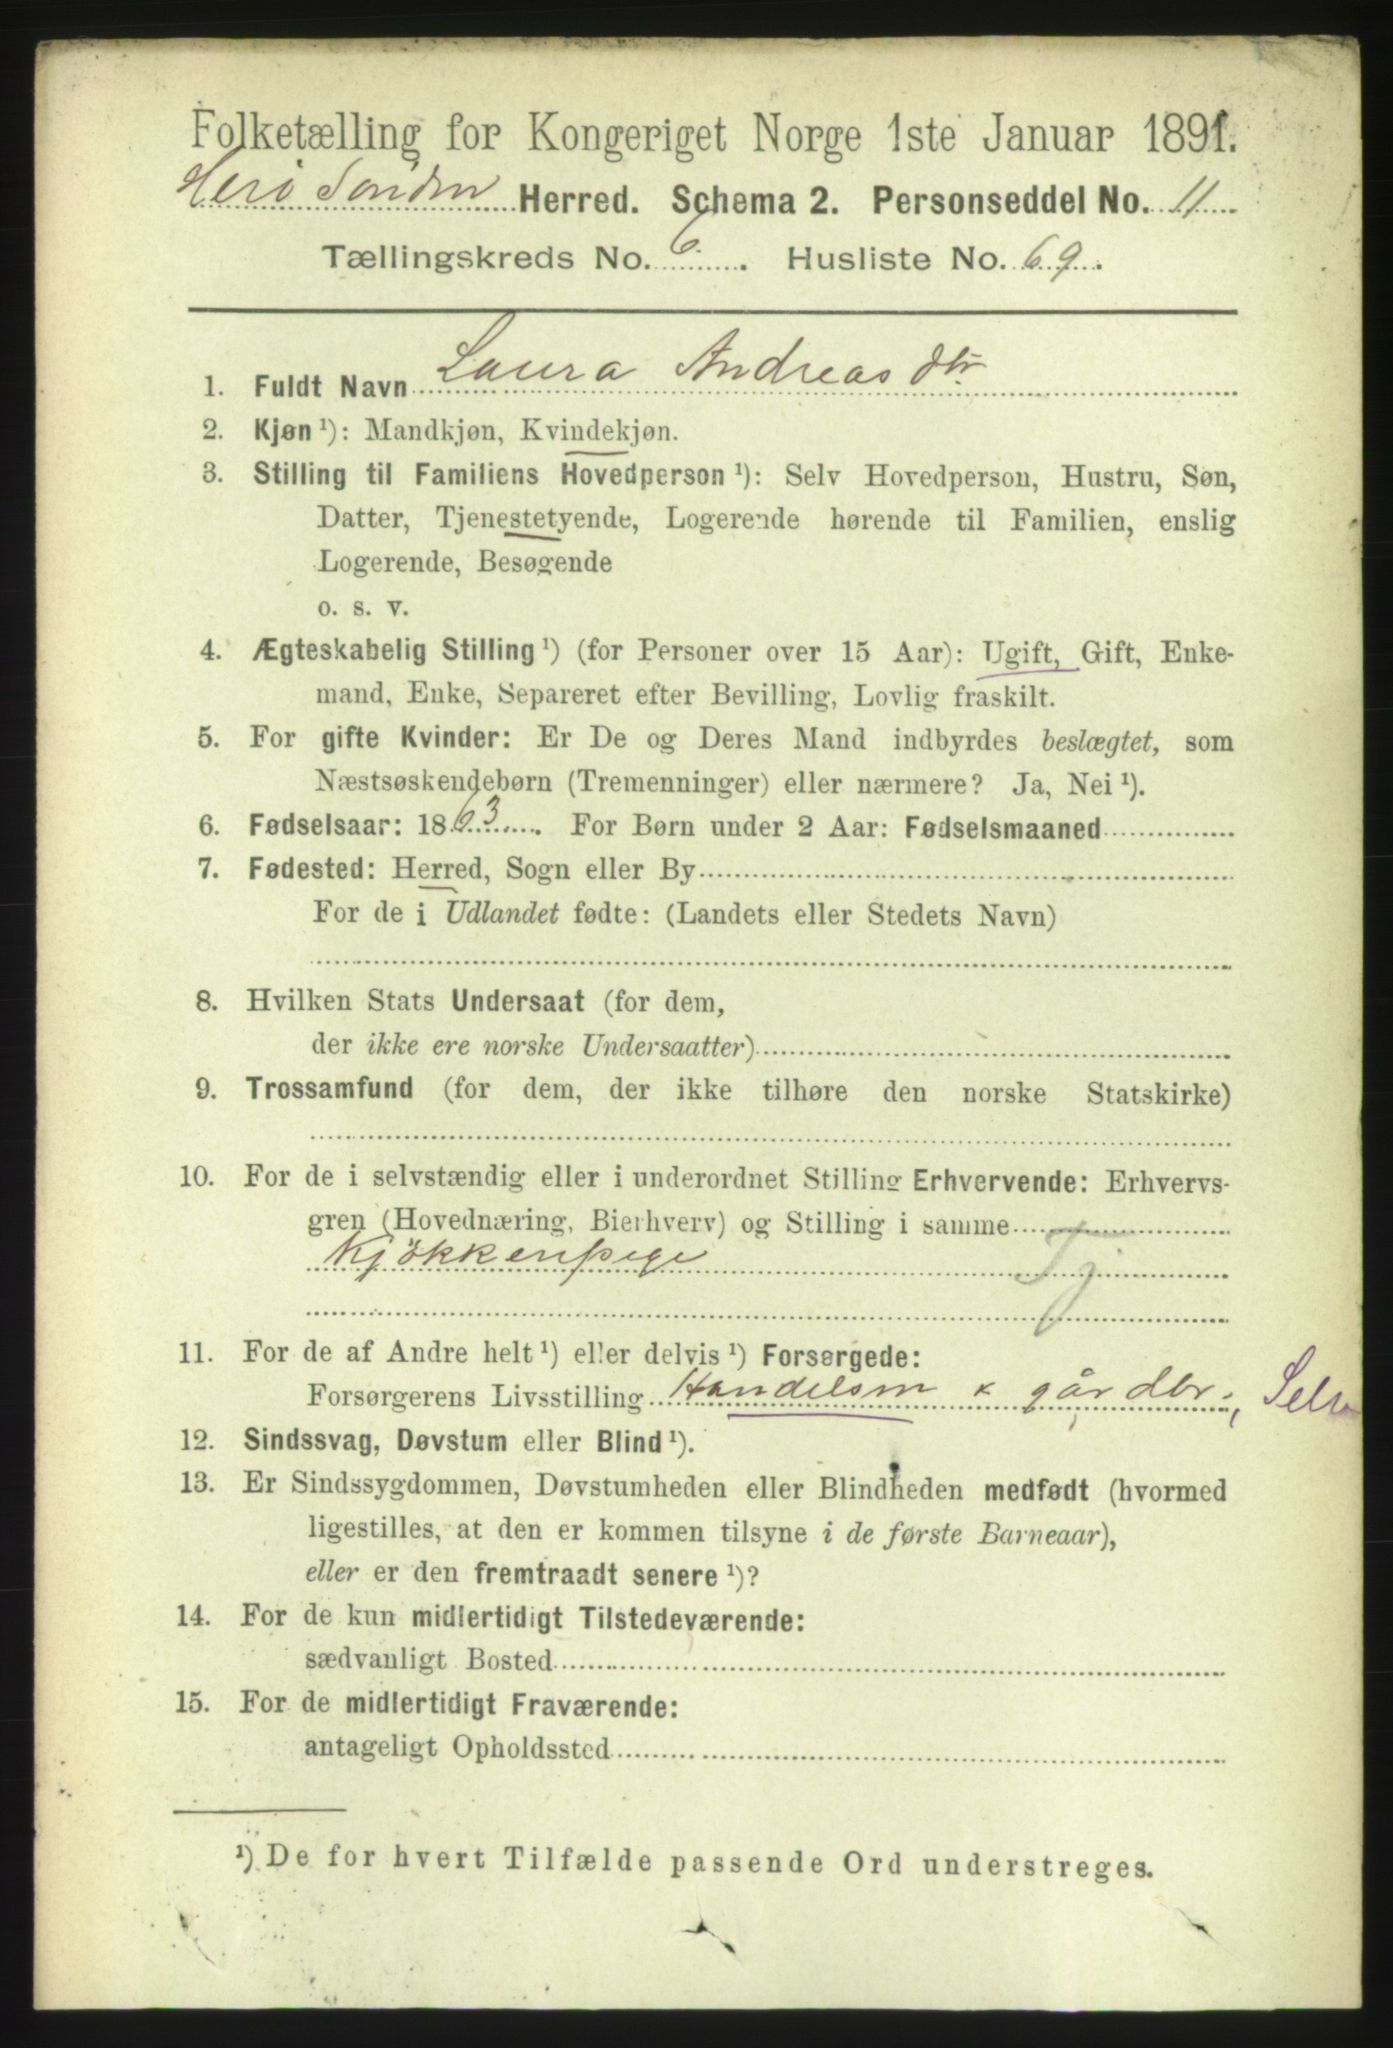 Folketælling for Kongeriget Norge 1ste Januar 1891.
Herö Söndre Herred. Schema 2. Personseddel No. 11
Tællingskreds No. 6. Husliste No. 69.
1. Fuldt Navn Laura Andreasdtr
2. Kjøn ¹): Mandkjøn, Kvindekjøn.
3. Stilling til Familiens Hovedperson ¹): Selv Hovedperson, Hustru, Søn,
Datter, Tjenestetyende, Logerende hørende til Familien, enslig
Logerende, Besøgende
o. s. v.
4. Ægteskabelig Stilling ¹) (for Personer over 15 Aar): Ugift, Gift, Enke-
mand, Enke, Separeret efter Bevilling, Lovlig fraskilt.
5. For gifte Kvinder: Er De og Deres Mand indbyrdes beslægtet, som
Næstsøskendebørn (Tremenninger) eller nærmere? Ja, Nei ¹).
6. Fødselsaar: 1863. For Børn under 2 Aar: Fødselsmaaned
7. Fødested: Herred, Sogn eller By
For de i Udlandet fødte: (Landets eller Stedets Navn)
8. Hvilken Stats Undersaat (for dem,
der ikke ere norske Undersaatter)
9. Trossamfund (for dem, der ikke tilhøre den norske Statskirke)
10. For de i selvstændig eller i underordnet Stilling Erhvervende: Erhvervs-
gren (Hovednæring, Bierhverv) og Stilling i samme
Kjökkenpige Tj
11. For de af Andre helt ¹) eller delvis ¹) Forsørgede:
Forsørgerens Livsstilling Handelsm x gårdbr., Selv
12. Sindssvag, Døvstum eller Blind ¹).
13. Er Sindssygdommen, Døvstumheden eller Blindheden medfødt (hvormed
ligestilles, at den er kommen tilsyne i de første Barneaar),
eller er den fremtraadt senere ¹)?
14. For de kun midlertidigt Tilstedeværende:
sædvanligt Bosted
15. For de midlertidigt Fraværende:
antageligt Opholdssted
¹) De for hvert Tilfælde passende Ord understreges.